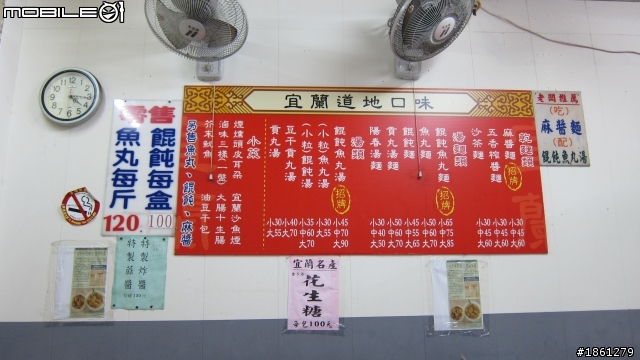 mobile01
零售
餛飩每盒
100
魚丸每斤
120
宜蘭道地口味
乾麵類
麻醬麵
招牌
小30
中45
大60
五香榨醬麵
小30
中45
大60
沙茶麵
小30
中45
大60
湯麵類
餛飩魚丸麵
招牌
小50
中65
大85
魚丸麵
貢丸湯麵
陽春湯麵
湯類
餛飩魚丸湯
招牌
小45
中70
大90
(小粒)魚丸湯
(小粒)餛飩湯
小35
中60
大70
豆干貢丸湯
小40
大70
貢丸湯
小30
大55
小菜
煙燻頭皮耳朵
宜蘭沙魚煙
滷味三樣(一盤)
大腸十生腸
芥末魷魚
油豆干包
另售魚丸、餛飩、麻醬
老闆推薦
(吃)
麻醬麵
(配)
餛飩魚丸湯
特製炸醬
特製蒜醬
宜蘭名產
花生糖
每包100元
#1861279